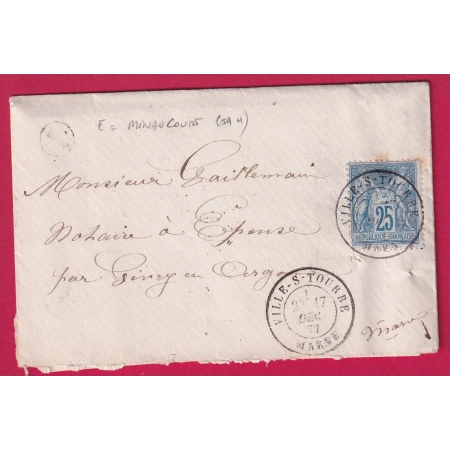 E = MINAUCOURT (IND 4)
E
Monsieur Gaillemain
Notaire à Epense
par Givry en Argonne
Marne
VILLE-S-TOURBE
MARNE
25
REPUBLIQUE FRANÇAISE
VILLE-S-TOURBE
17
DEC
77
MARNE